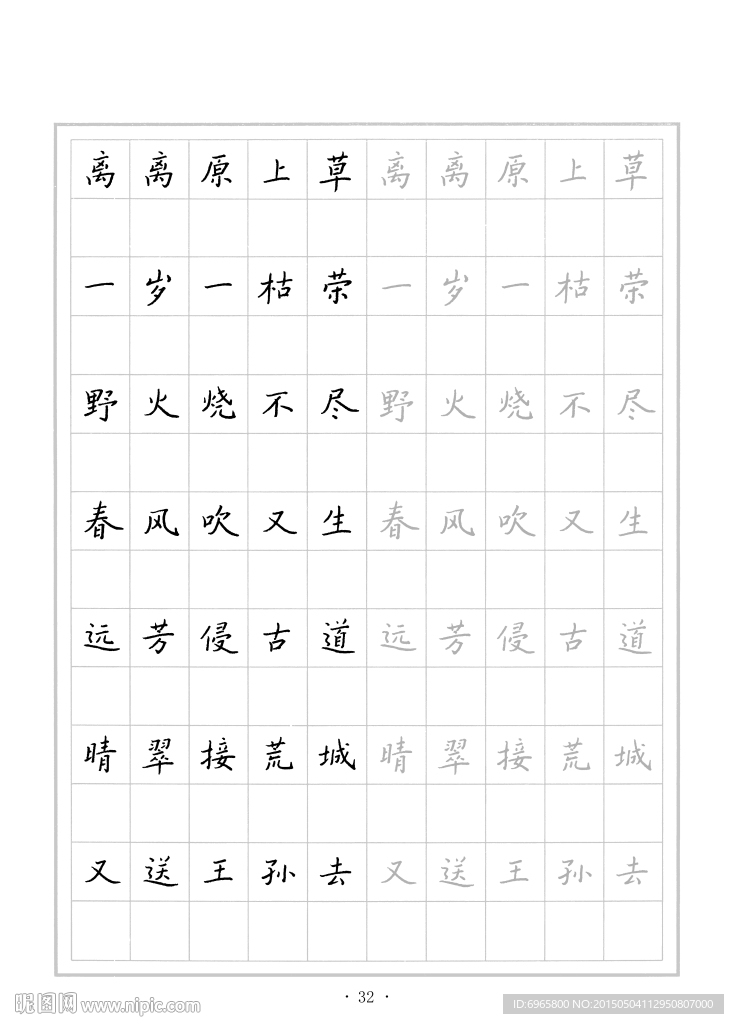 离离原上草离离原上草
一岁一枯荣一岁一枯荣
野火烧不尽野火烧不尽
春风吹又生春风吹又生
远芳侵古道远芳侵古道
晴翠接荒城晴翠接荒城
又送王孙去又送王孙去
· 32 ·
昵图网 www.nipic.com
ID:6965800 NO:20150504112950807000